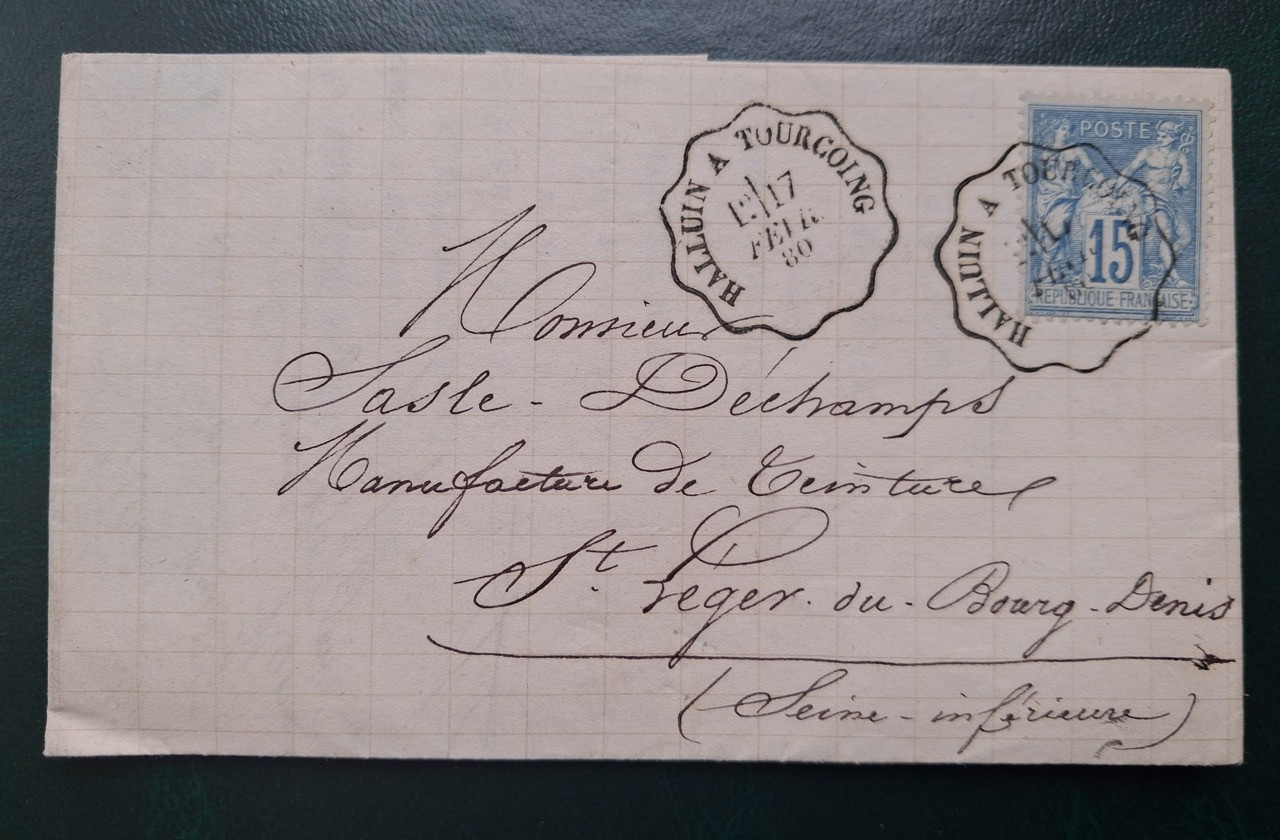 HALLUIN A TOURCOING
17
FEVR.
80
POSTE
15
REPUBLIQUE FRANÇAISE
HALLUIN A TOURCOING
Monsieur
Sasle - Déchamps
Manufacture de Teintures
St Leger - du - Bourg - Denis
(Seine - inférieure)